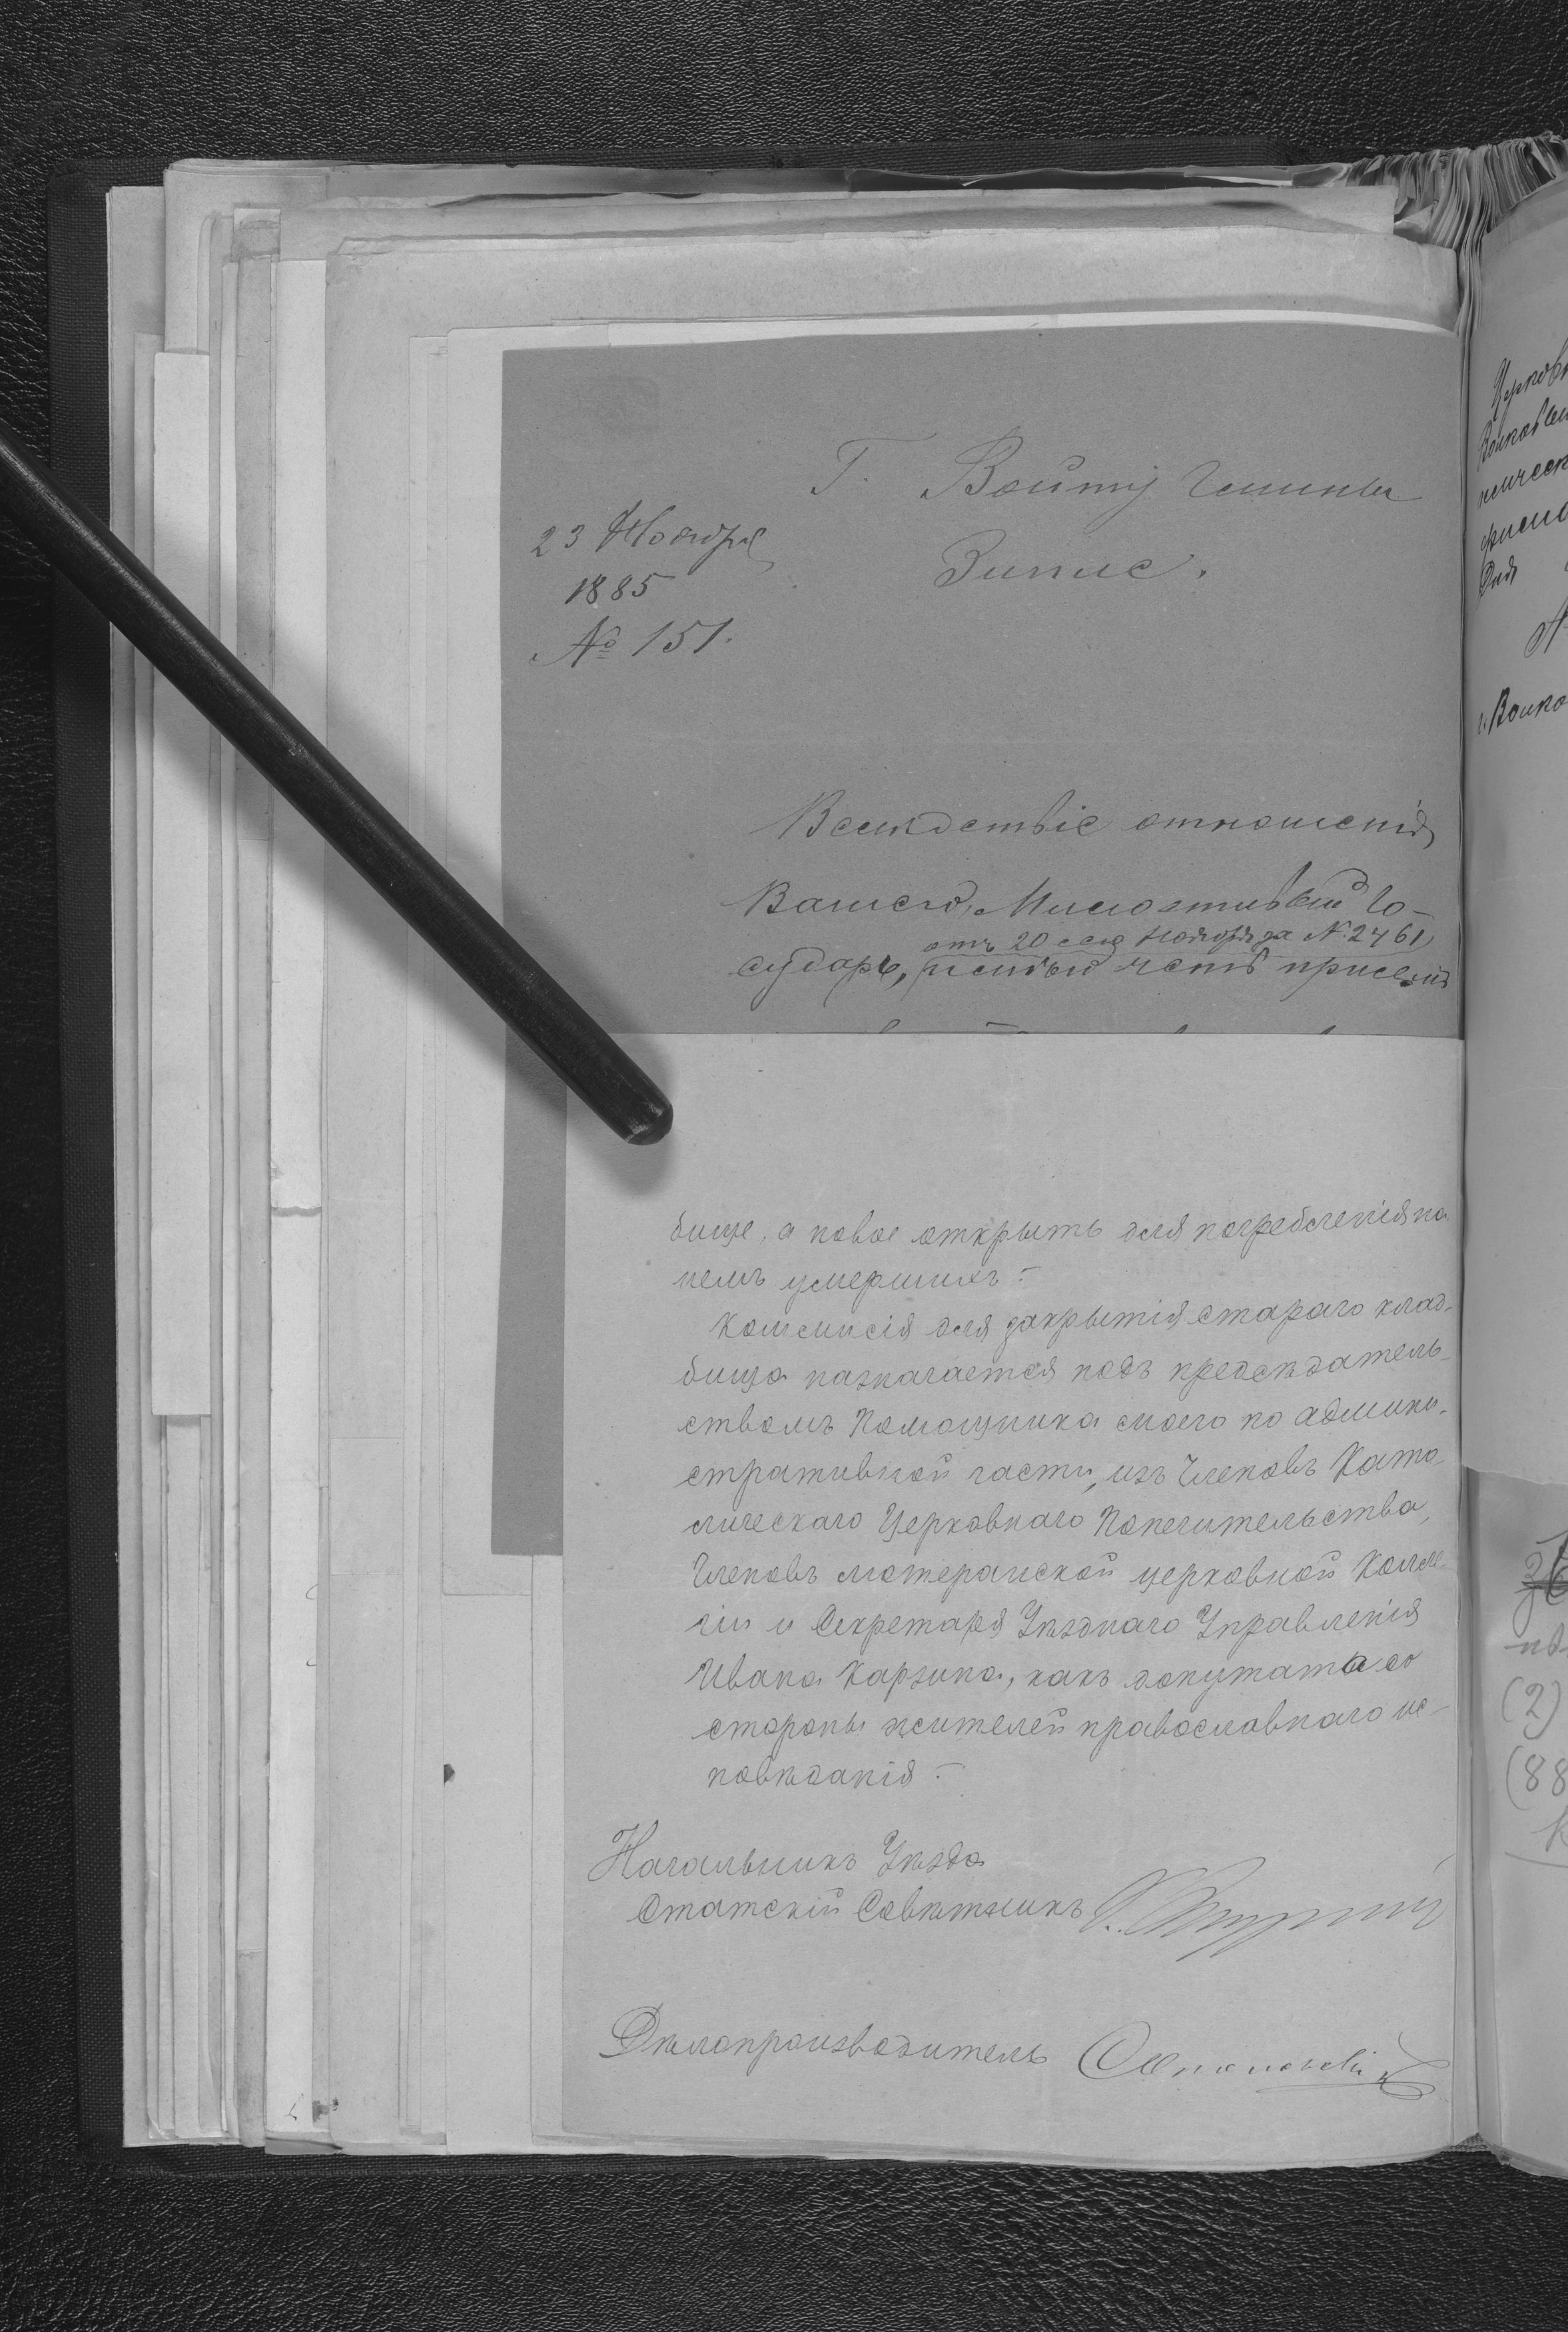 Г. Войту Гмины
Зипис.
23 Ноября
1885
№ 151.
Вслѣдствіе отношенія
Вашего, Милостивый Го-
отъ 20 сего Ноября за № 2461
сударь, имѣю честь
бище, а новое открыть для погребенія на
немъ умершихъ.-
Коммисія для закрытія стараго клад-
бища назначается подъ предсѣдатель-
ствомъ Помощника моего по админи-
стративной части, изъ Членовъ Като-
лическаго Церковнаго Попечительства,
Членовъ лютеранской церковной Колле-
гіи и Секретаря Уѣзднаго Управленія
Ивана Карзина, какъ допутата со
стороны жителей православнаго ис-
повѣданія.-
Начальникъ Уѣзда
Статскій Совѣтникъ
Дѣлопроизводитель
(2)
(88